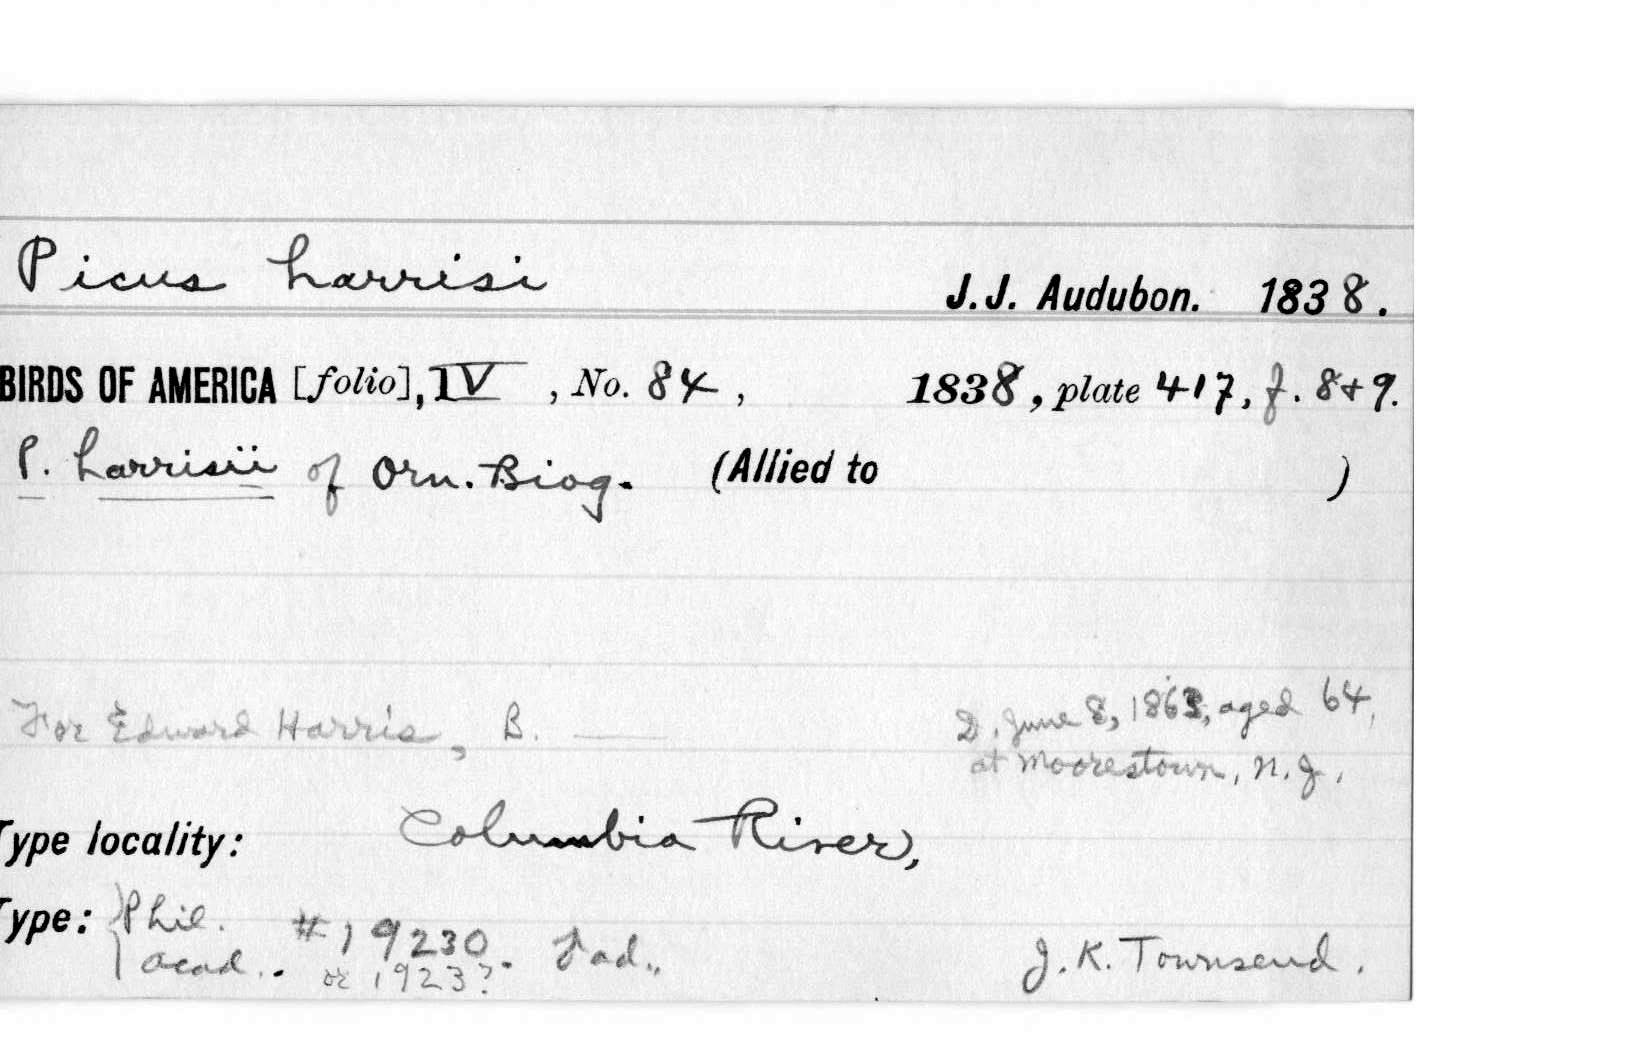 Picus harrisi
J. J. Audubon. 1838.
BIRDS OF AMERICA [folio], IV, No. 84, 1838, plate 417, f. 8+9.
P. harrisii of Orn. Biog. (Allied to )
For Edward Harris, B. —— D. June 8, 1863, aged 64,
at Moorestown, N. J.,
Type locality: Columbia River,
Type: Phil. #19230. ad..
Acad.. or 1923? J. K. Townsend.